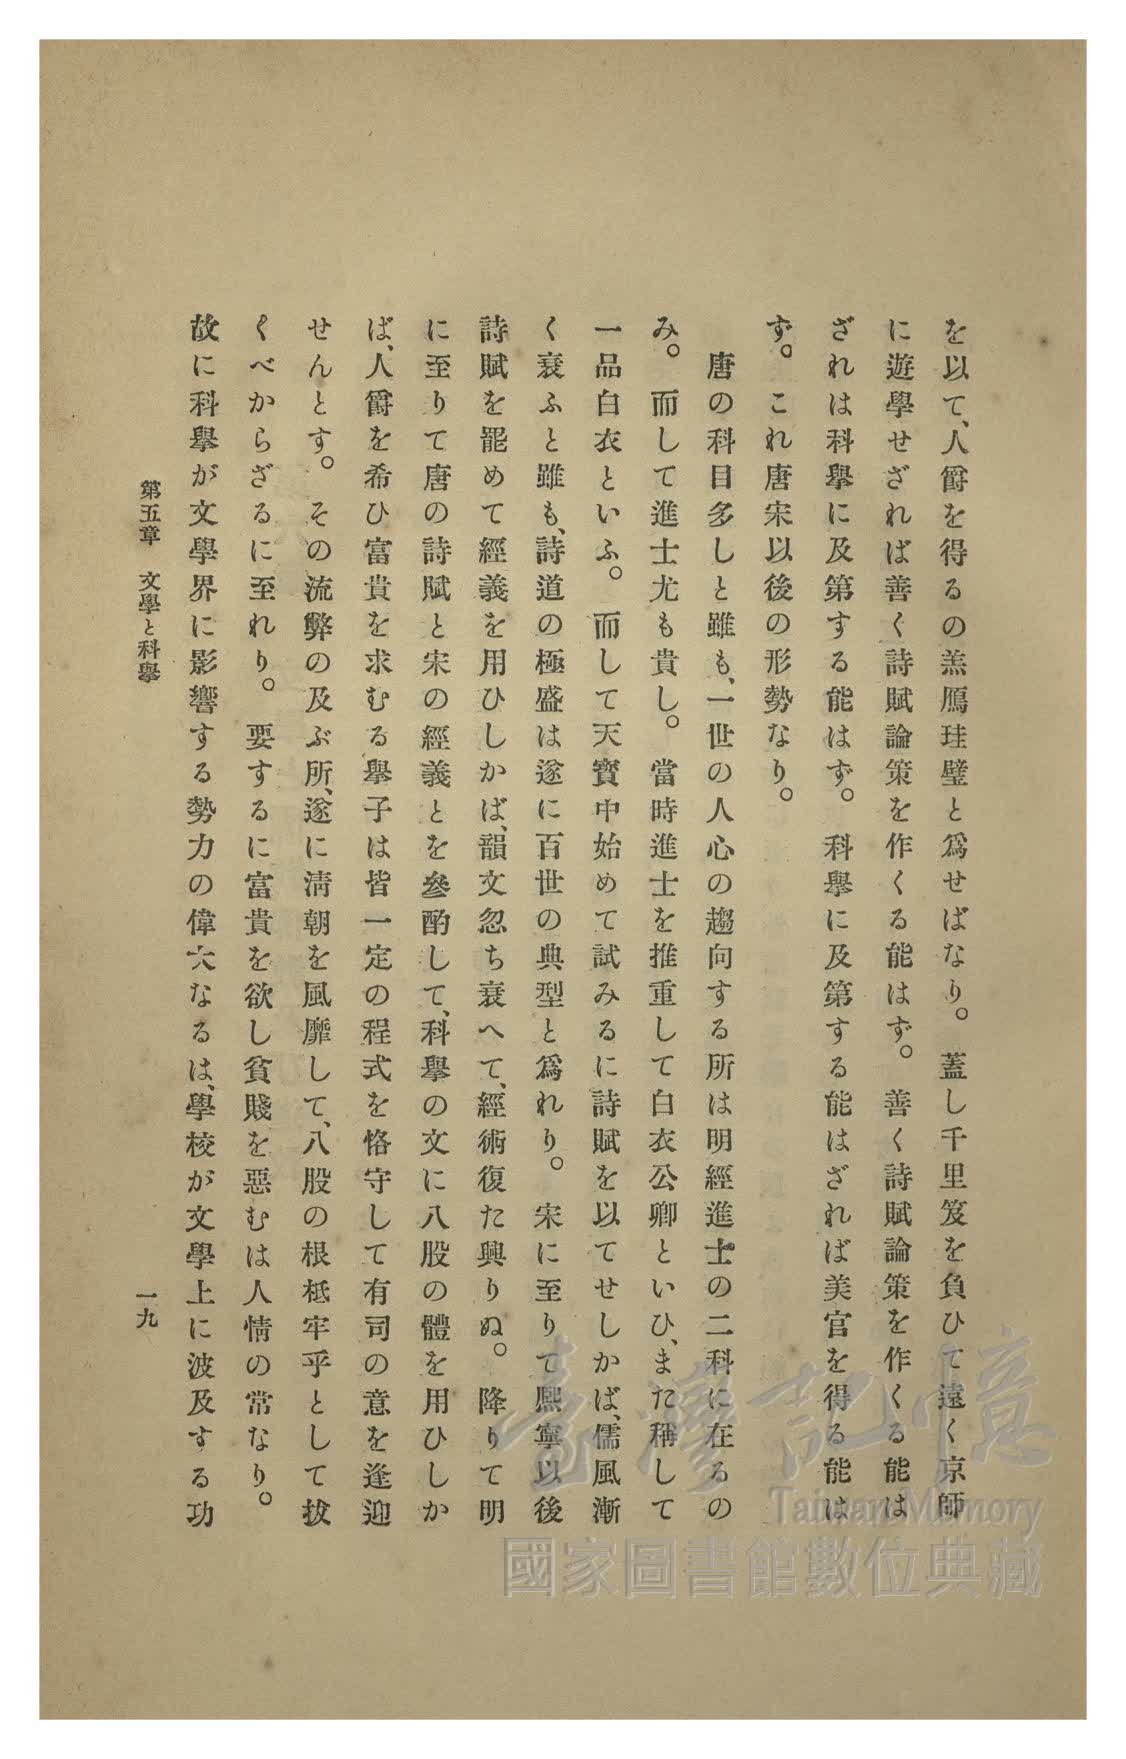 を以て、人爵を得るの羔鴈珪璧と爲せばなり。蓋し千里笈を負ひて遠く京師
に遊學せざれば善く詩賦論策を作くる能はず。善く詩賦論策を作くる能は
ざれは科擧に及第する能はず。科擧に及第する能はざれば美官を得る能は
ず。これ唐宋以後の形勢なり。
唐の科目多しと雖も、一世の人心の趨向する所は明經進士の二科に在るの
み。而して進士尤も貴し。當時進士を推重して白衣公卿といひ、また稱して
一品白衣といふ。而して天寶中始めて試みるに詩賦を以てせしかば、儒風漸
く衰ふと雖も、詩道の極盛は遂に百世の典型と爲れり。宋に至りて熙寧以後
詩賦を罷めて經義を用ひしかば、韻文忽ち衰へて、經術復た興りぬ。降りて明
に至りて唐の詩賦と宋の經義とを參酌して、科擧の文に八股の體を用ひしか
ば、人爵を希ひ富貴を求むる擧子は皆一定の程式を恪守して有司の意を逢迎
せんとす。その流弊の及ぶ所、遂に淸朝を風靡して、八股の根柢牢乎として拔
くべからざるに至れり。要するに富貴を欲し貧賤を惡むは人情の常なり。
故に科擧が文學界に影響する勢力の偉大なるは、學校が文學上に波及する功
第五章　文學と科擧
一九
臺灣記憶
Taiwan Memory
國家圖書館數位典藏